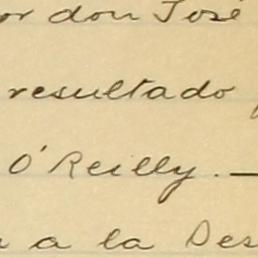 or don José
resultado
O'Reilly.—
a a la Des